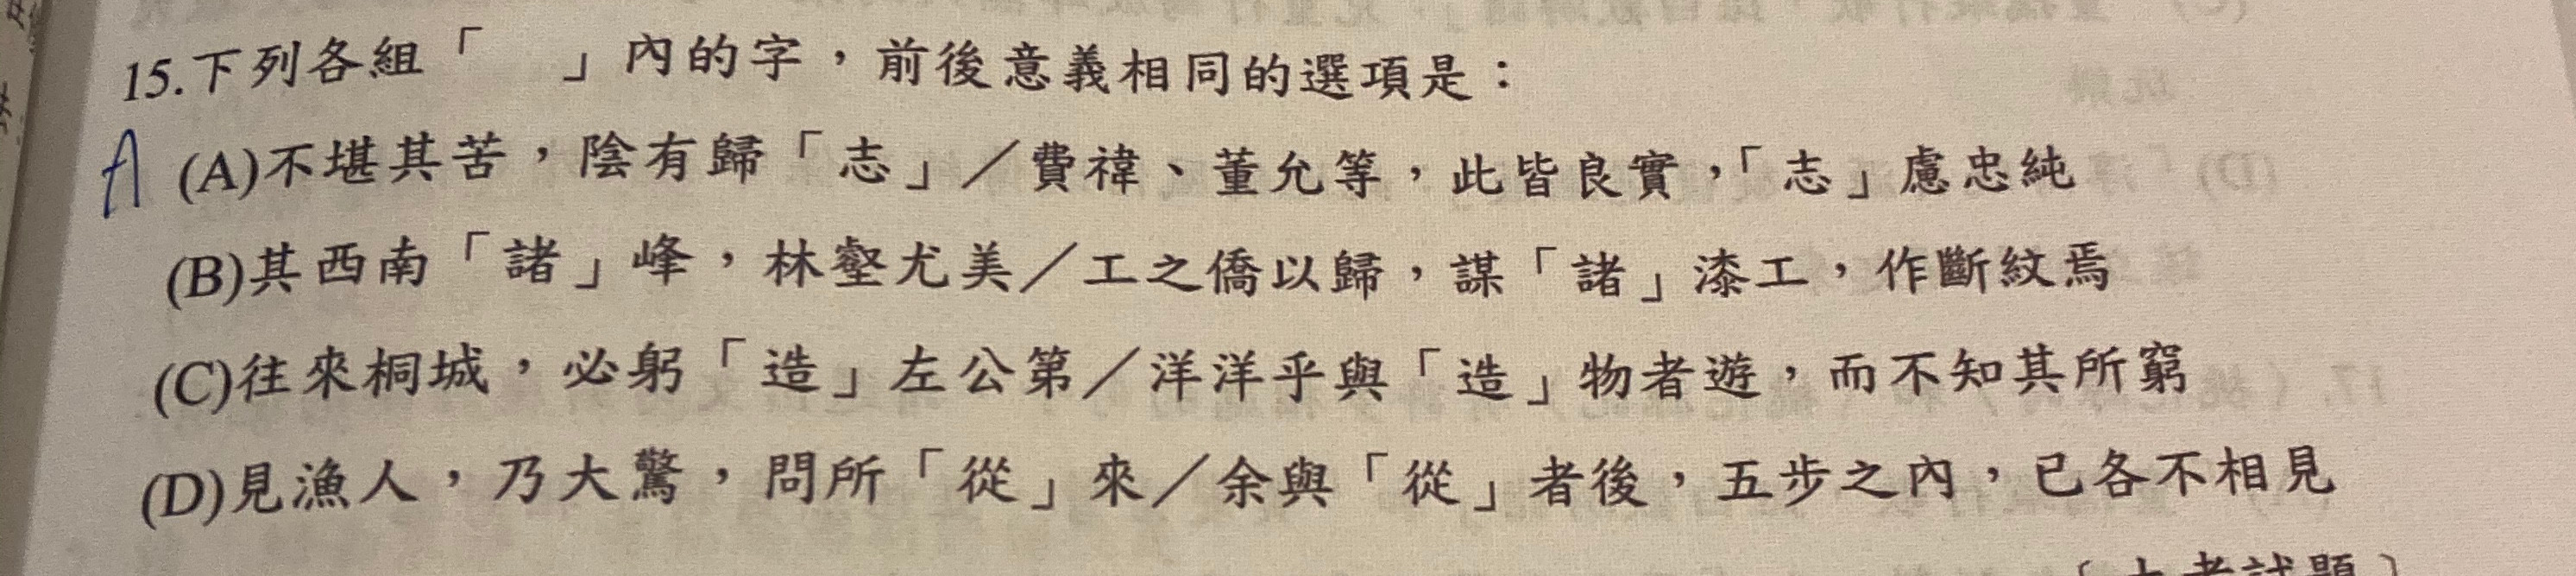 15.下列各組「　」內的字，前後意義相同的選項是：
A (A)不堪其苦，陰有歸「志」／費禕、董允等，此皆良實，「志」慮忠純
(B)其西南「諸」峰，林壑尤美／工之僑以歸，謀「諸」漆工，作斷紋焉
(C)往來桐城，必躬「造」左公第／洋洋乎與「造」物者遊，而不知其所窮
(D)見漁人，乃大驚，問所「從」來／余與「從」者後，五步之內，已各不相見